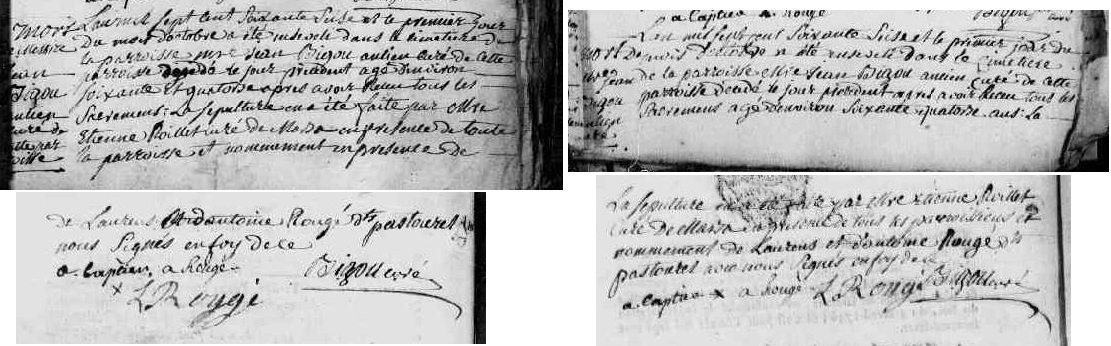 mort
Lan mil sept cent soixante seise et le premier jour
du mois doctobre a été enseveli dans le cimetiere de
la parroisse mre Jean Bigou antien curé de cette
parroisse decedé le jour précédent agé denviron
soixante et quatorse apres avoir Receu tous les
sacremens La sepulture en a été faite par Mre
Etienne Roillet curé de en presence de toute
la parroisse et nommement en presence de
Jean
Bigou
antien
curé de
de Laurens et dantoine Rougé dts pastouret
nous signés en foy de ce
a Captier, a Rougé
Bigou curé
x L Rougé
a Captier x a Rougé
Lan mil sept cent soixante seise et le premier jour du
mois doctobre a été enseveli dans le cimetiere
de la parroisse Mre Jean Bigou antien curé de cette
parroisse decedé le jour precedent apres avoir Receu tous les
sacremens agé denviron soixante quatorse ans La
Jean
Bigou
antien
La sepulture en a été faite par Mre Etienne Roillet
curé de en presence de tous les parroissiens et
nommement de Laurens et dantoine Rougé dts
pastouret avec nous signés en foy de ce
a Captier x a Rougé L Rougé Bigou curé